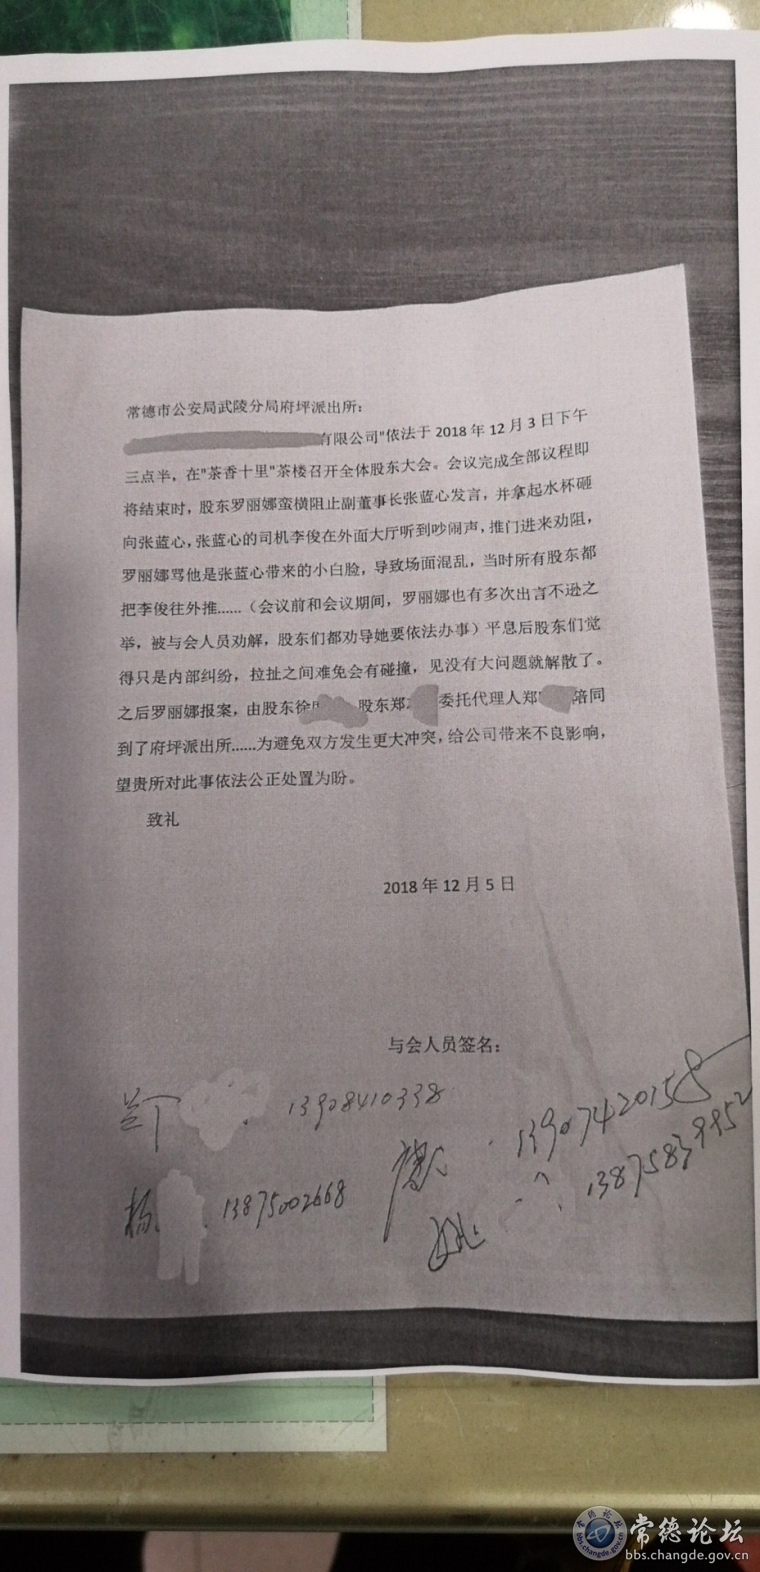 常德市公安局武陵分局府坪派出所：
有限公司"依法于2018年12月3日下午
三点半，在"茶香十里"茶楼召开全体股东大会。会议完成全部议程即
将结束时，股东罗丽娜蛮横阻止副董事长张蓝心发言，并拿起水杯砸
向张蓝心，张蓝心的司机李俊在外面大厅听到吵闹声，推门进来劝阻，
罗丽娜骂他是张蓝心带来的小白脸，导致场面混乱，当时所有股东都
把李俊往外推......（会议前和会议期间，罗丽娜也有多次出言不逊之
举，被与会人员劝解，股东们都劝导她要依法办事）平息后股东们觉
得只是内部纠纷，拉扯之间难免会有碰撞，见没有大问题就解散了。
之后罗丽娜报案，由股东徐 股东郑 委托代理人郑 陪同
到了府坪派出所......为避免双方发生更大冲突，给公司带来不良影响，
望贵所对此事依法公正处置为盼。
致礼
2018年12月5日
与会人员签名：
13908410338
13907420158
杨 13875002668
姚 13875839952
常德论坛
bbs.changde.gov.cn